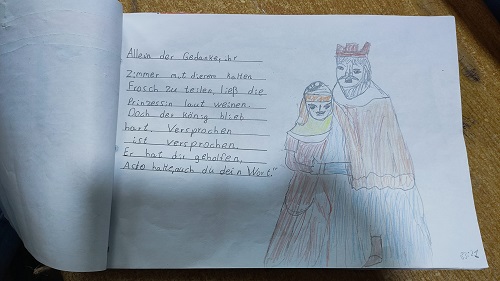 Allein der Gedanke, ihr
Zimmer mit dierem kalten
Frosch zu teilen, ließ die
Prinzessin laut weinen.
Doch der König blieb
hart. Versprochen
ist versprochen.
Er hat dir geholfen,
Also halte auch du dein Wort."